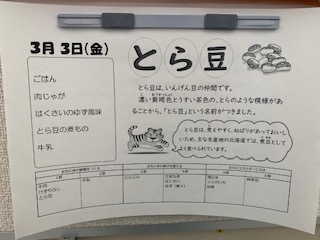 3月 3日(金)
とら豆
ごはん
肉じゃが
はくさいのゆず風味
とら豆の煮もの
牛乳
とら豆は、いんげん豆の仲間です。
濃い黄褐色とうすい茶色の、とらのような模様があ
ることから、「とら豆」という名前がつきました。
とら豆は、煮えやすく、ねばりがあっておいし
いため、主な生産地の北海道では、煮豆として
よく食べられています。
牛乳
にんじん
とら豆